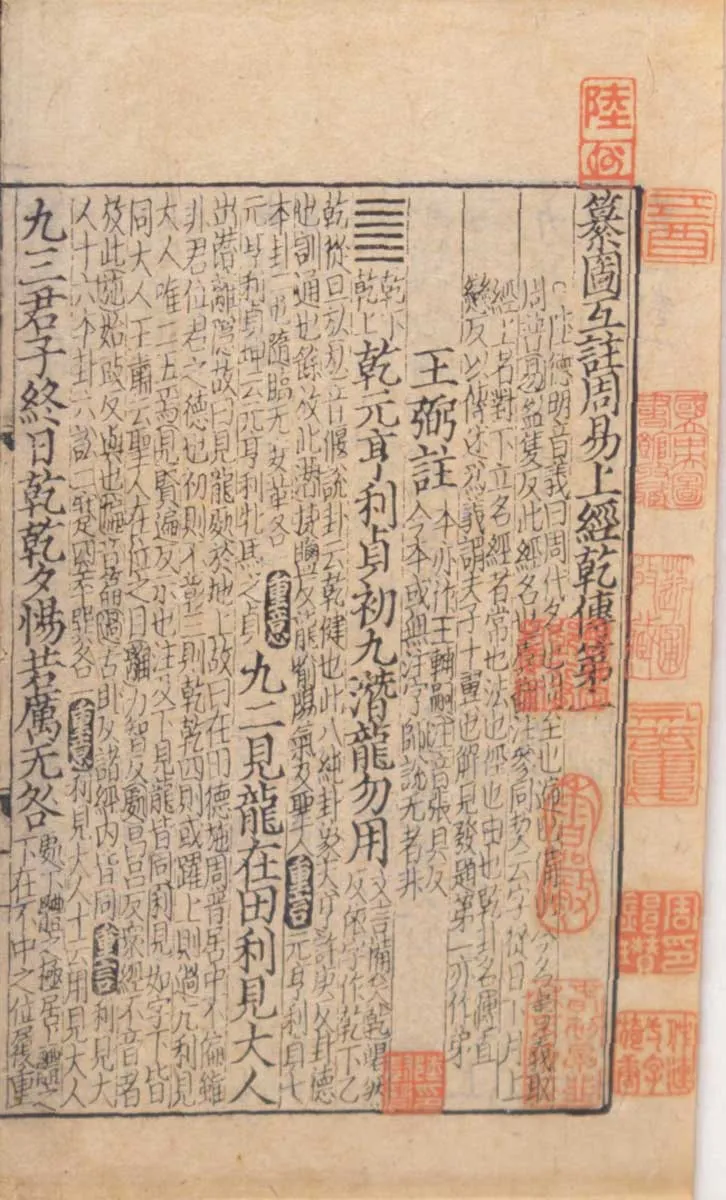 纂圗互註周易上經乾傳第一
陸德明音義曰周代名也周至也遍也備也今名書義取
周普易盈隻反此經名也虞翻注參同契云字從日下月上
經上名對下立名經者常也法也徑也由也乾卦名傳直
戀反以傳述爲義謂夫子十翼也解見發題第一亦作弟
王弼註
本亦作王輔嗣注音張具反
今本或無注字師說无者非
䷀
乾下
乾上
乾元亨利貞初九潛龍勿用
文言備矣乾竭然
反依字作乾下乙
乾從旦㫃音偃說卦云乾健也此八純卦象天亨許庚反卦德
也訓通也餘放此潛捷鹽反龍喻陽氣及聖人 重言 元亨利貞七
本卦一屯隨臨无妄革各
元亨利貞坤云元亨利牝馬之貞
重意 九二見龍在田利見大人
出潛離隱故曰見龍處於地上故曰在田德施周普居中不偏雖
非君位君之德也初則不彰三則乾乾四則或躍上則過亢利見
大人唯二五焉見賢遍反示也注及下見龍皆同利見如字下皆
同大人王肅云聖人在位之目離力智反處昌呂反衆經不音者
放此施始豉反與也偏音篇反諸經内皆同 重言 利見大
人十六本卦六訟一蹇四萃巽各一 重意 利見大人十云用見大人
九三君子終日乾乾夕惕若厲无咎
處下體之極居上體之
下在不中之位履重